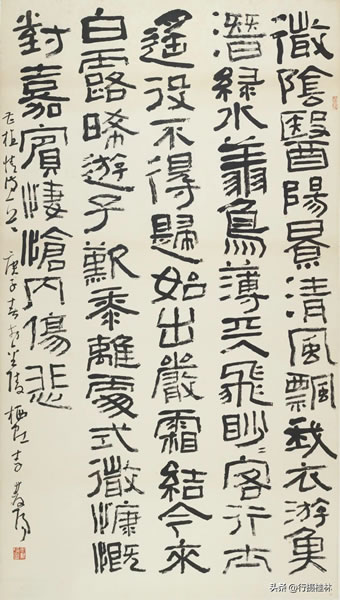 微陰醫陽景清風飄我衣游魚
潛綠水翔鳥薄天飛眇〻客行士
遥役不得歸始出嚴霜結今來
白露晞遊子歎黍離處式微慷慨
對嘉賓悽愴內傷悲
植情詩一首 庚子春於金陵
头条 @行摄桂林